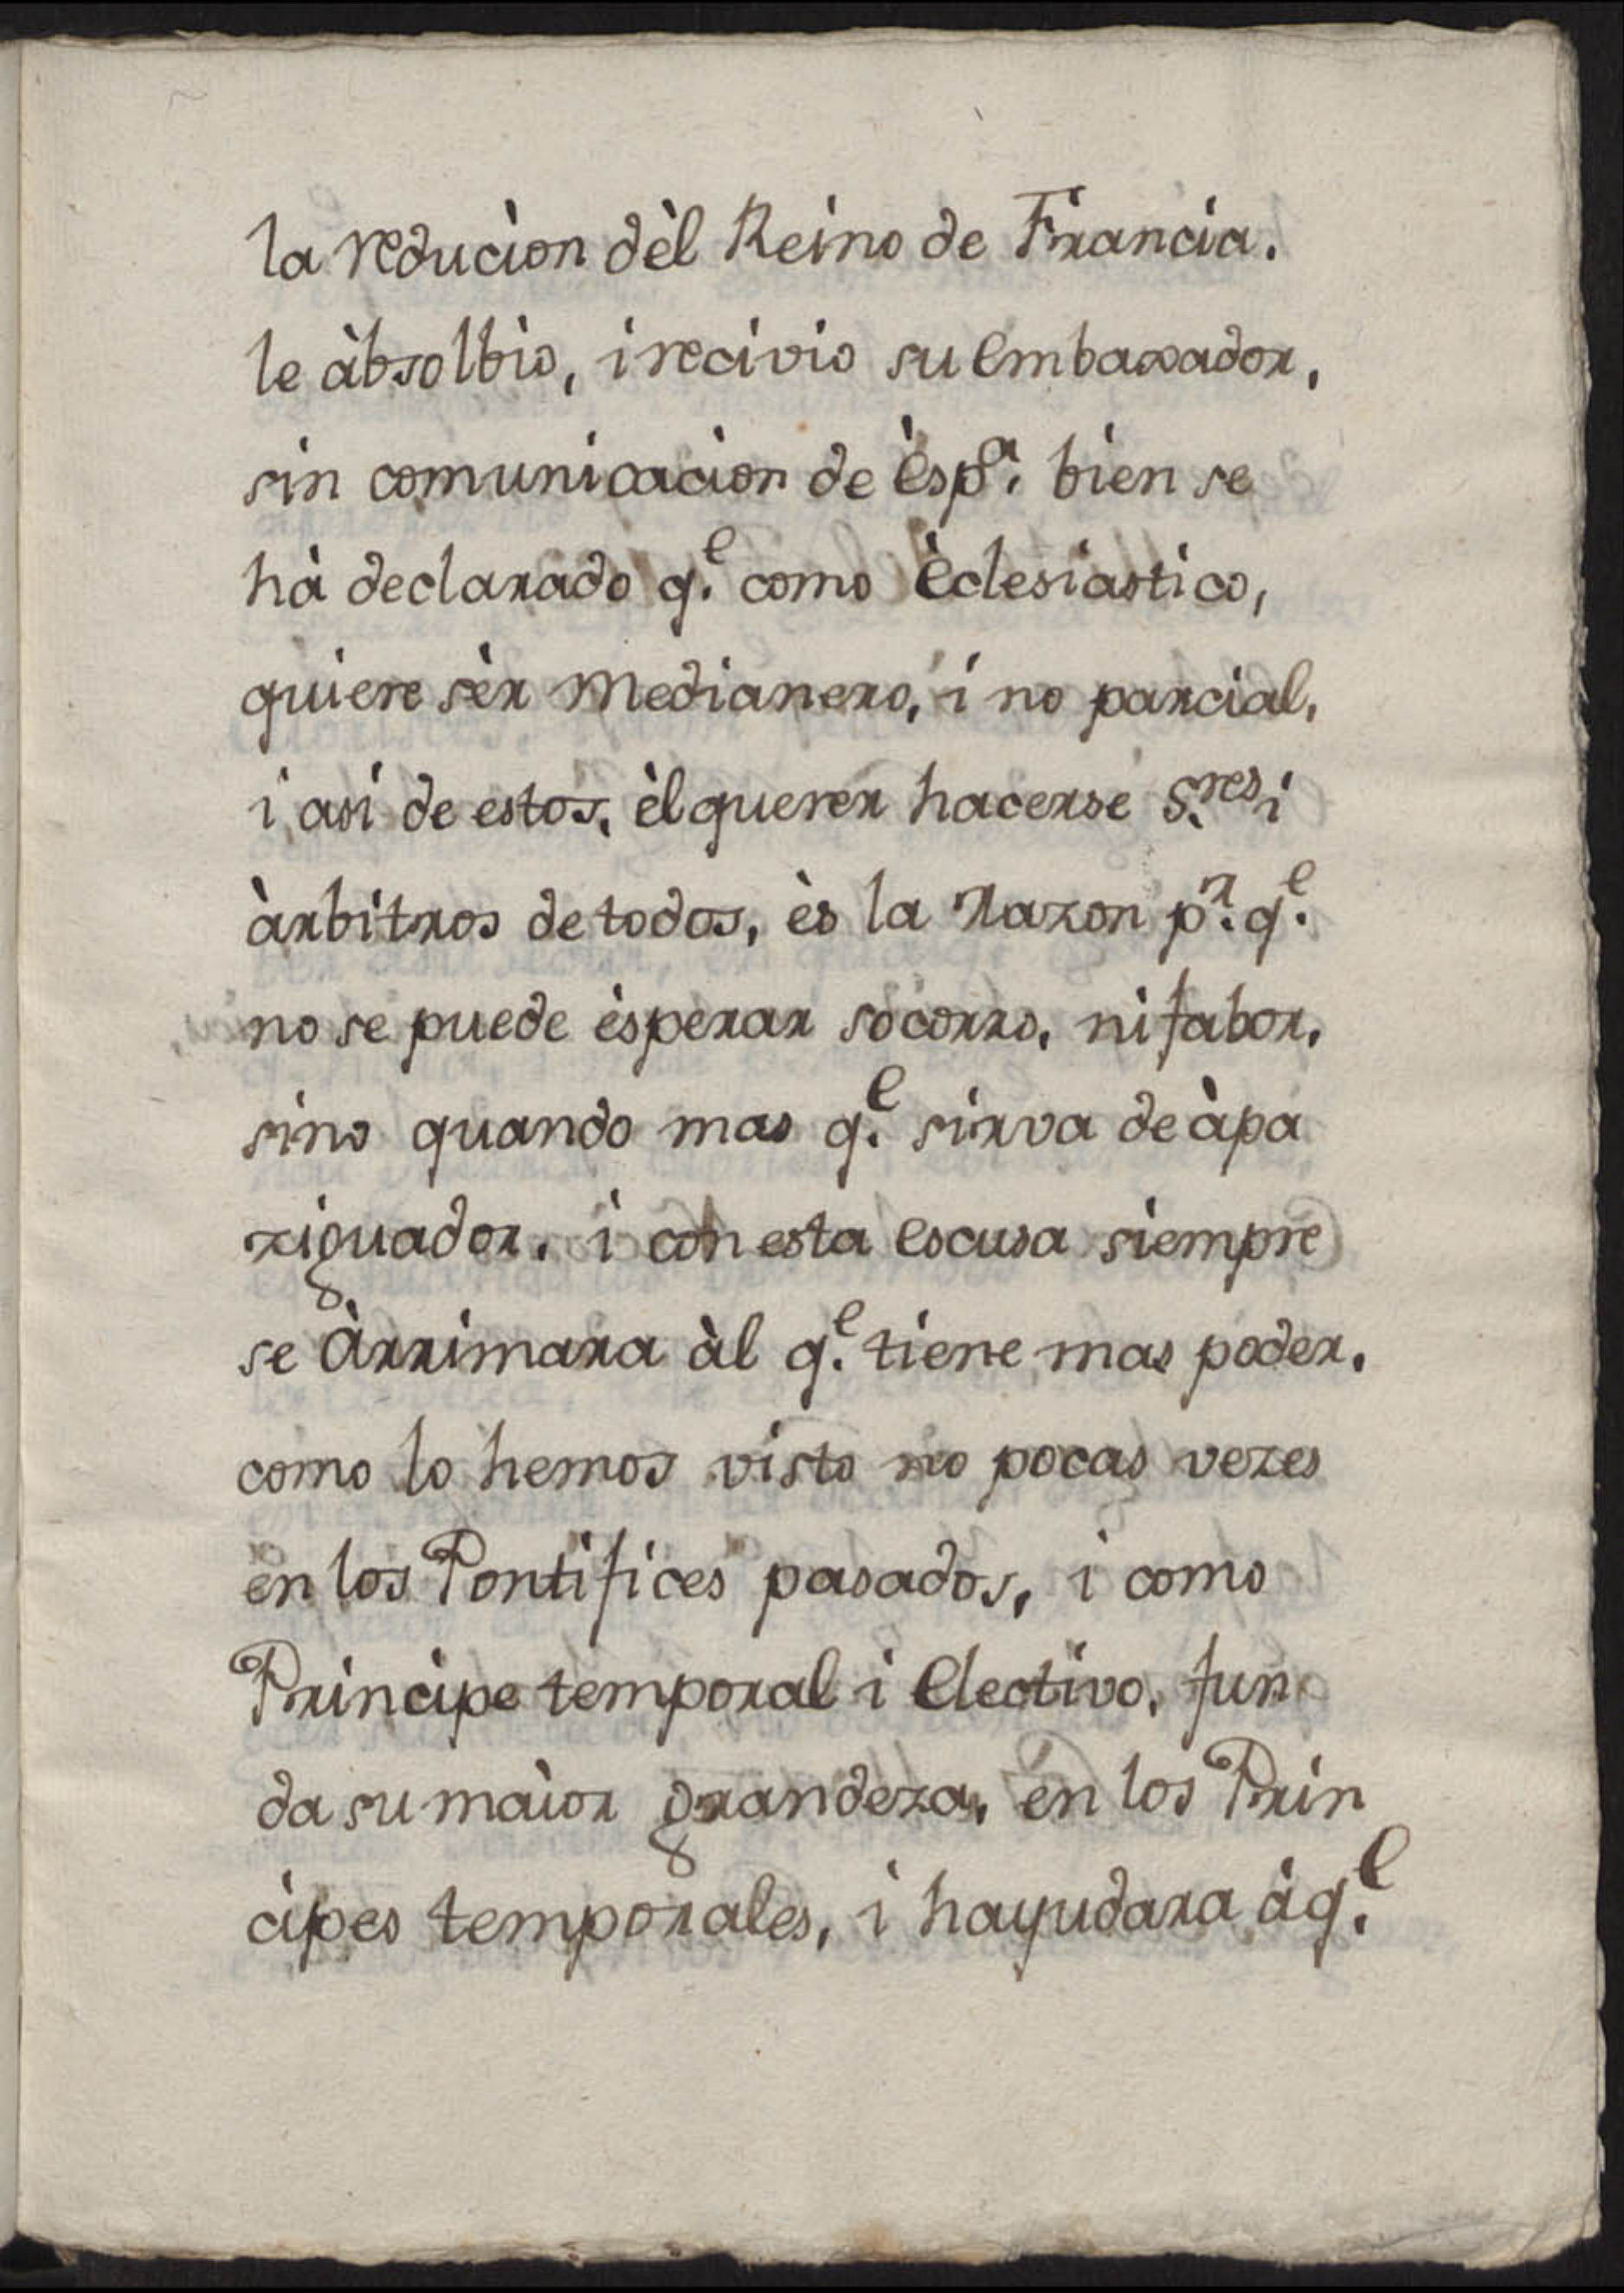 la reducion dèl Reino de Francia.
le àbsolbio, i recivio su embaxador,
sin comunicacion de èsp.ª bien se
hà declarado q.e como èclesiastico,
quiere sèr medianero, i no parcial,
i asi de estos, èl querer hacerse S.res i
àrbitros de todos, ès la razon p.r q.e
no se puede èsperar socorro, ni fabor,
sino quando mas q.e sirva de àpa
ziguador. i con esta escusa siempre
se Àrrimara àl q.e tiene mas poder.
como lo hemos visto no pocas vezes
en los Pontifices pasados, i como
Principe temporal i Electivo, fun
da su maior grandeza, en los Prin
cipes temporales, i hayudara àq.l